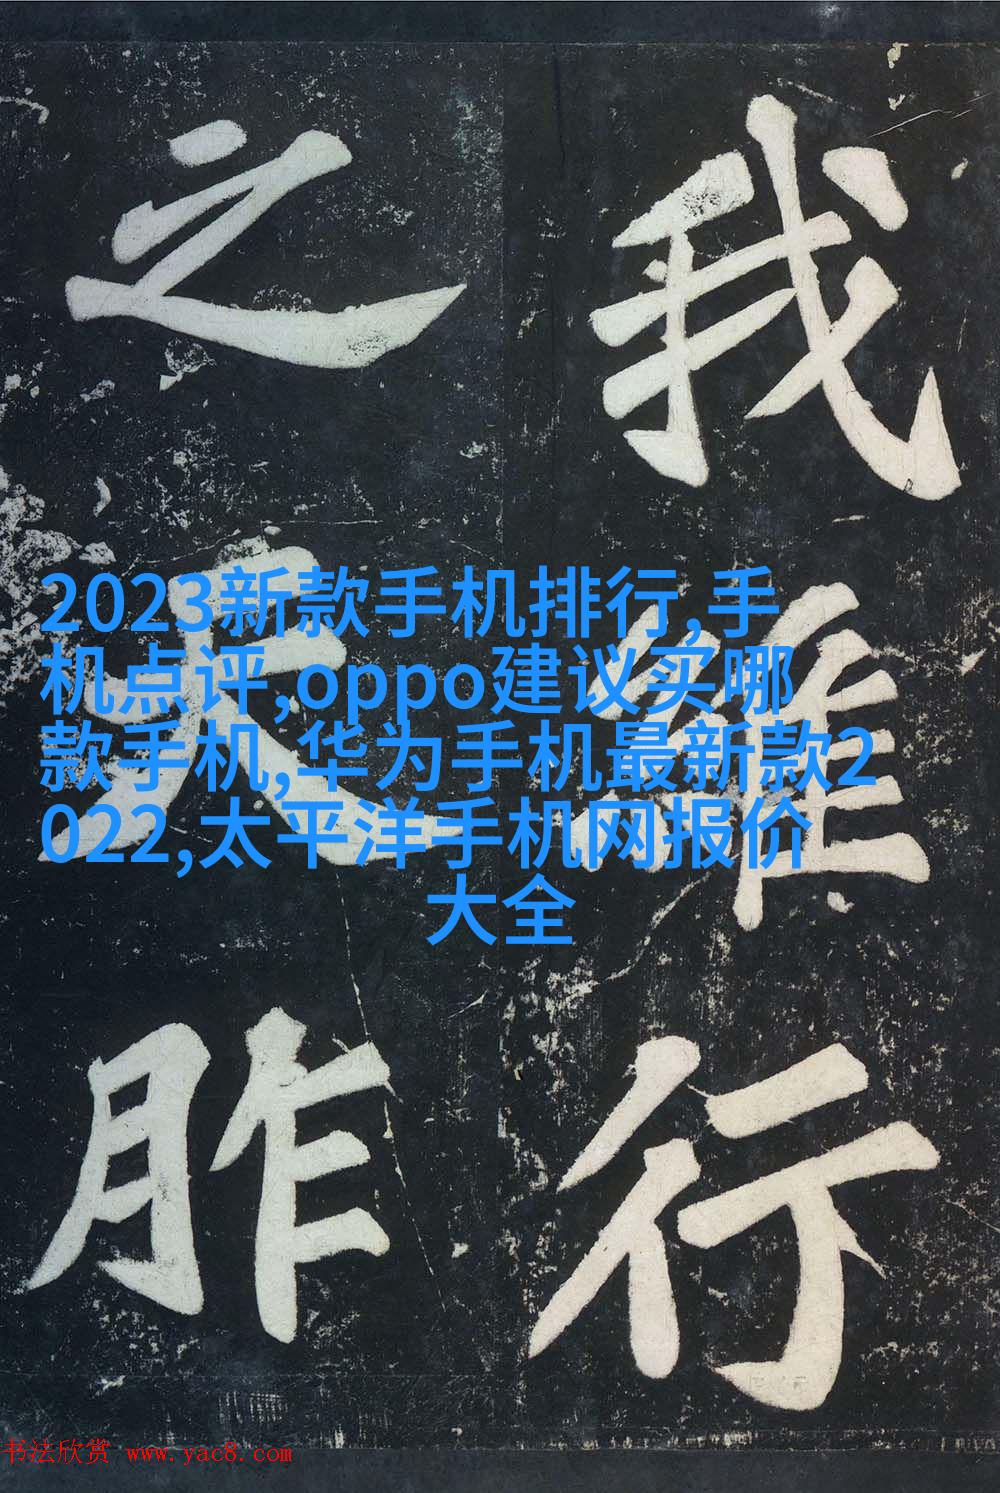 我惟行
之天胙
2023新款手机排行,手
机点评,oppo建议买哪
款手机,华为手机最新款2
022,太平洋手机网报价
大全
书法欣赏 www.yac8.com